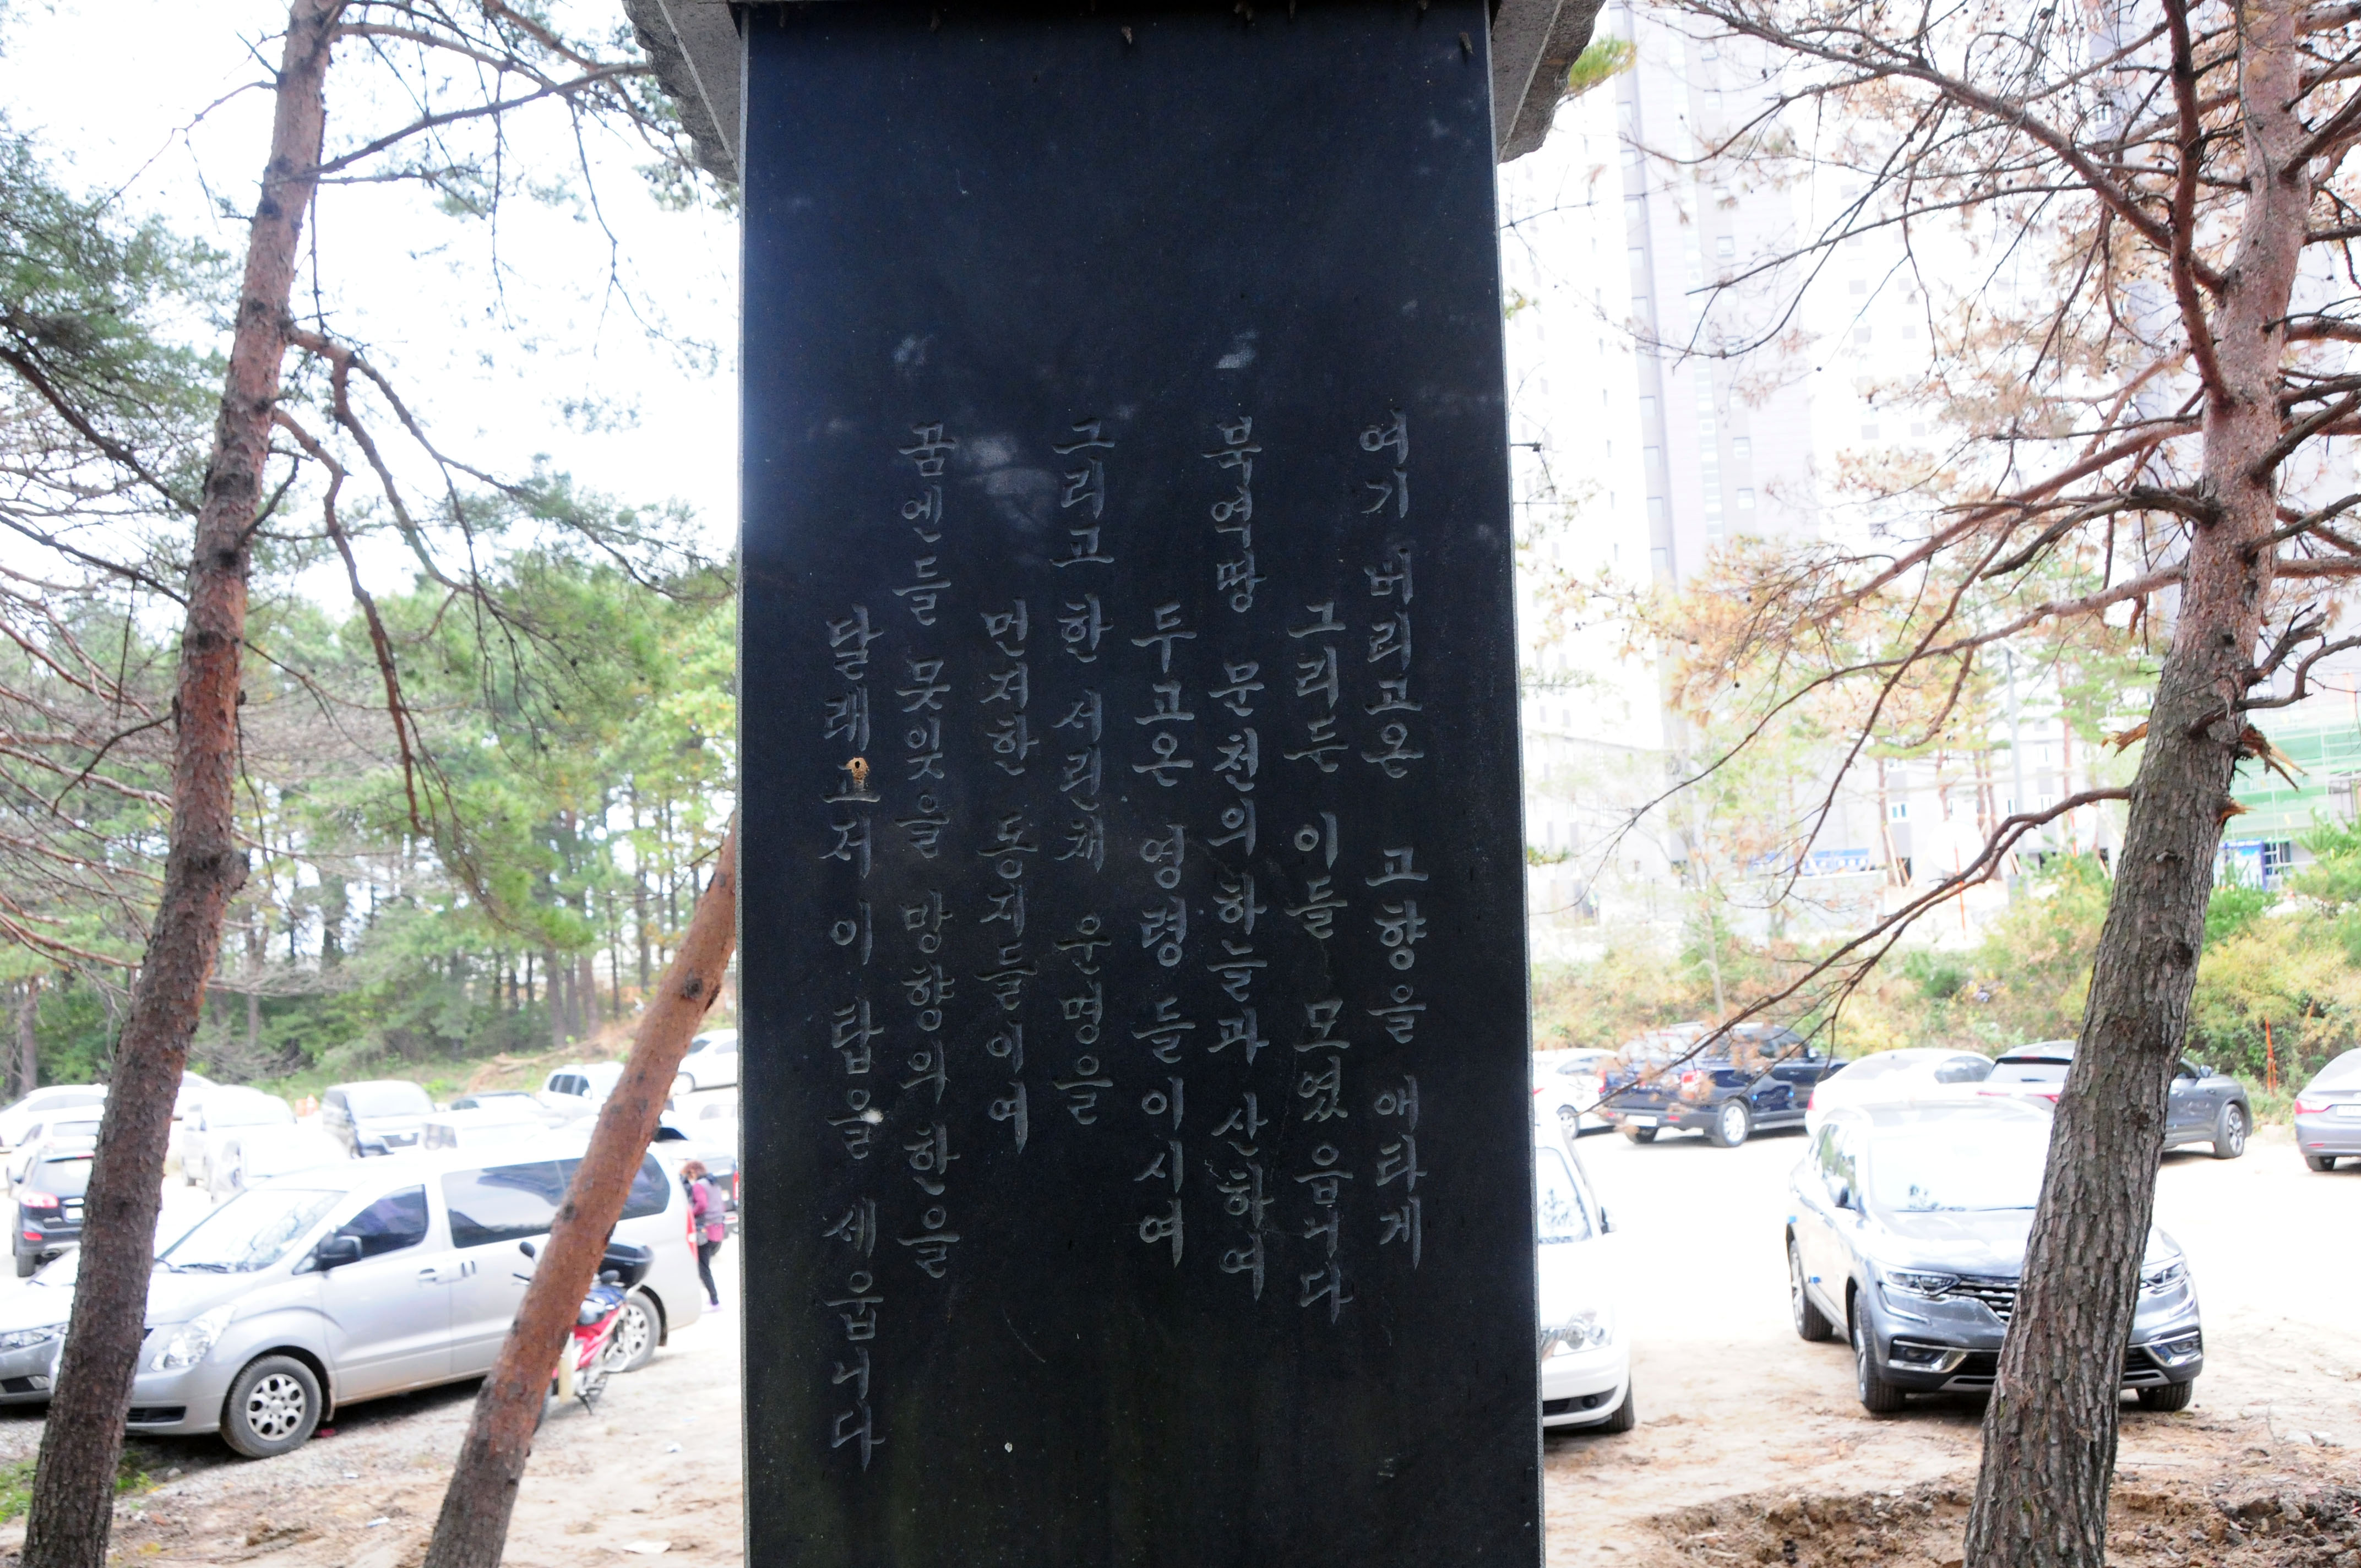 여기 버리고온 고향을 애타게
그리든 이들 모였읍니다
북역땅 문천의하늘과 산하여
두고온 영령들이시여
그리고 한 서린채 운명을
먼저한 동지들이여
꿈엔들 못잊을 망향의한을
달래고저 이 탑을 세웁니다